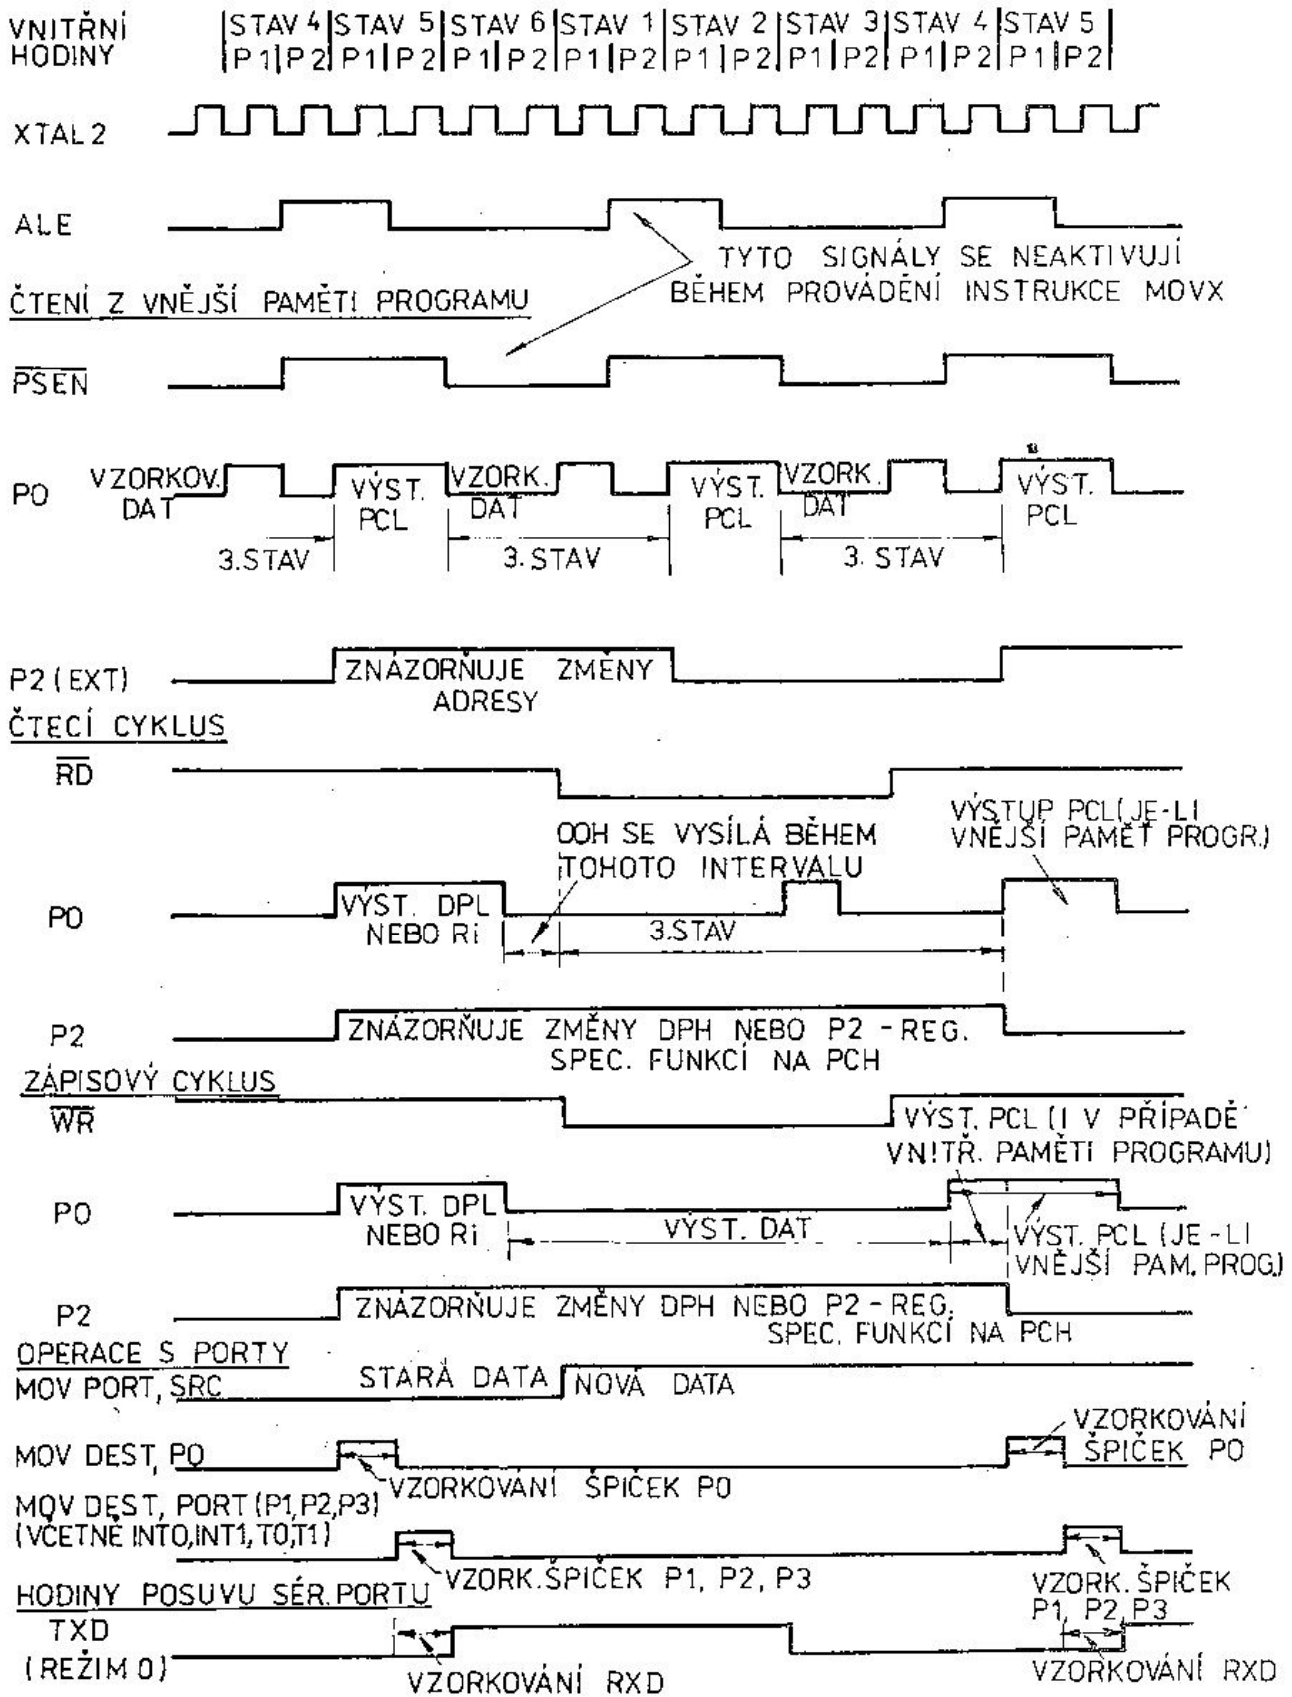 VNITŘNÍ HODINY
STAV 4 STAV 5 STAV 6 STAV 1 STAV 2 STAV 3 STAV 4 STAV 5
P1 P2 P1 P2 P1 P2 P1 P2 P1 P2 P1 P2 P1 P2 P1 P2
XTAL 2
ALE
TYTO SIGNÁLY SE NEAKTIVUJÍ
BĚHEM PROVÁDĚNÍ INSTRUKCE MOVX
ČTENÍ Z VNĚJŠÍ PAMĚTI PROGRAMU
PSEN
P0
VZORKOV.
DAT
VÝST.
PCL
VZORK.
DAT
VÝST.
PCL
VZORK.
DAT
VÝST.
PCL
3.STAV
3. STAV
3. STAV
P2 (EXT)
ZNÁZORŇUJE ZMĚNY
ADRESY
ČTECÍ CYKLUS
RD
OOH SE VYSÍLÁ BĚHEM
TOHOTO INTERVALU
VÝSTUP PCL(JE-LI
VNĚJŠÍ PAMĚŤ PROGR.)
P0
VÝST. DPL
NEBO Ri
3.STAV
P2
ZNÁZORŇUJE ZMĚNY DPH NEBO P2 - REG.
SPEC. FUNKCÍ NA PCH
ZÁPISOVÝ CYKLUS
WR
VÝST. PCL (I V PŘÍPADĚ
VNITŘ. PAMĚTI PROGRAMU)
P0
VÝST. DPL
NEBO Ri
VÝST. DAT
VÝST. PCL (JE-LI
VNĚJŠÍ PAM. PROG.)
P2
ZNÁZORŇUJE ZMĚNY DPH NEBO P2 - REG.
SPEC. FUNKCÍ NA PCH
OPERACE S PORTY
MOV PORT, SRC
STARÁ DATA
NOVÁ DATA
MOV DEST, P0
VZORKOVÁNÍ ŠPIČEK P0
VZORKOVÁNÍ
ŠPIČEK P0
MOV DEST, PORT (P1,P2,P3)
(VČETNĚ INT0,INT1,T0,T1)
VZORK.ŠPIČEK P1, P2, P3
VZORK. ŠPIČEK
P1, P2, P3
HODINY POSUVU SÉR. PORTU
TXD
(REŽIM 0)
VZORKOVÁNÍ RXD
VZORKOVÁNÍ RXD